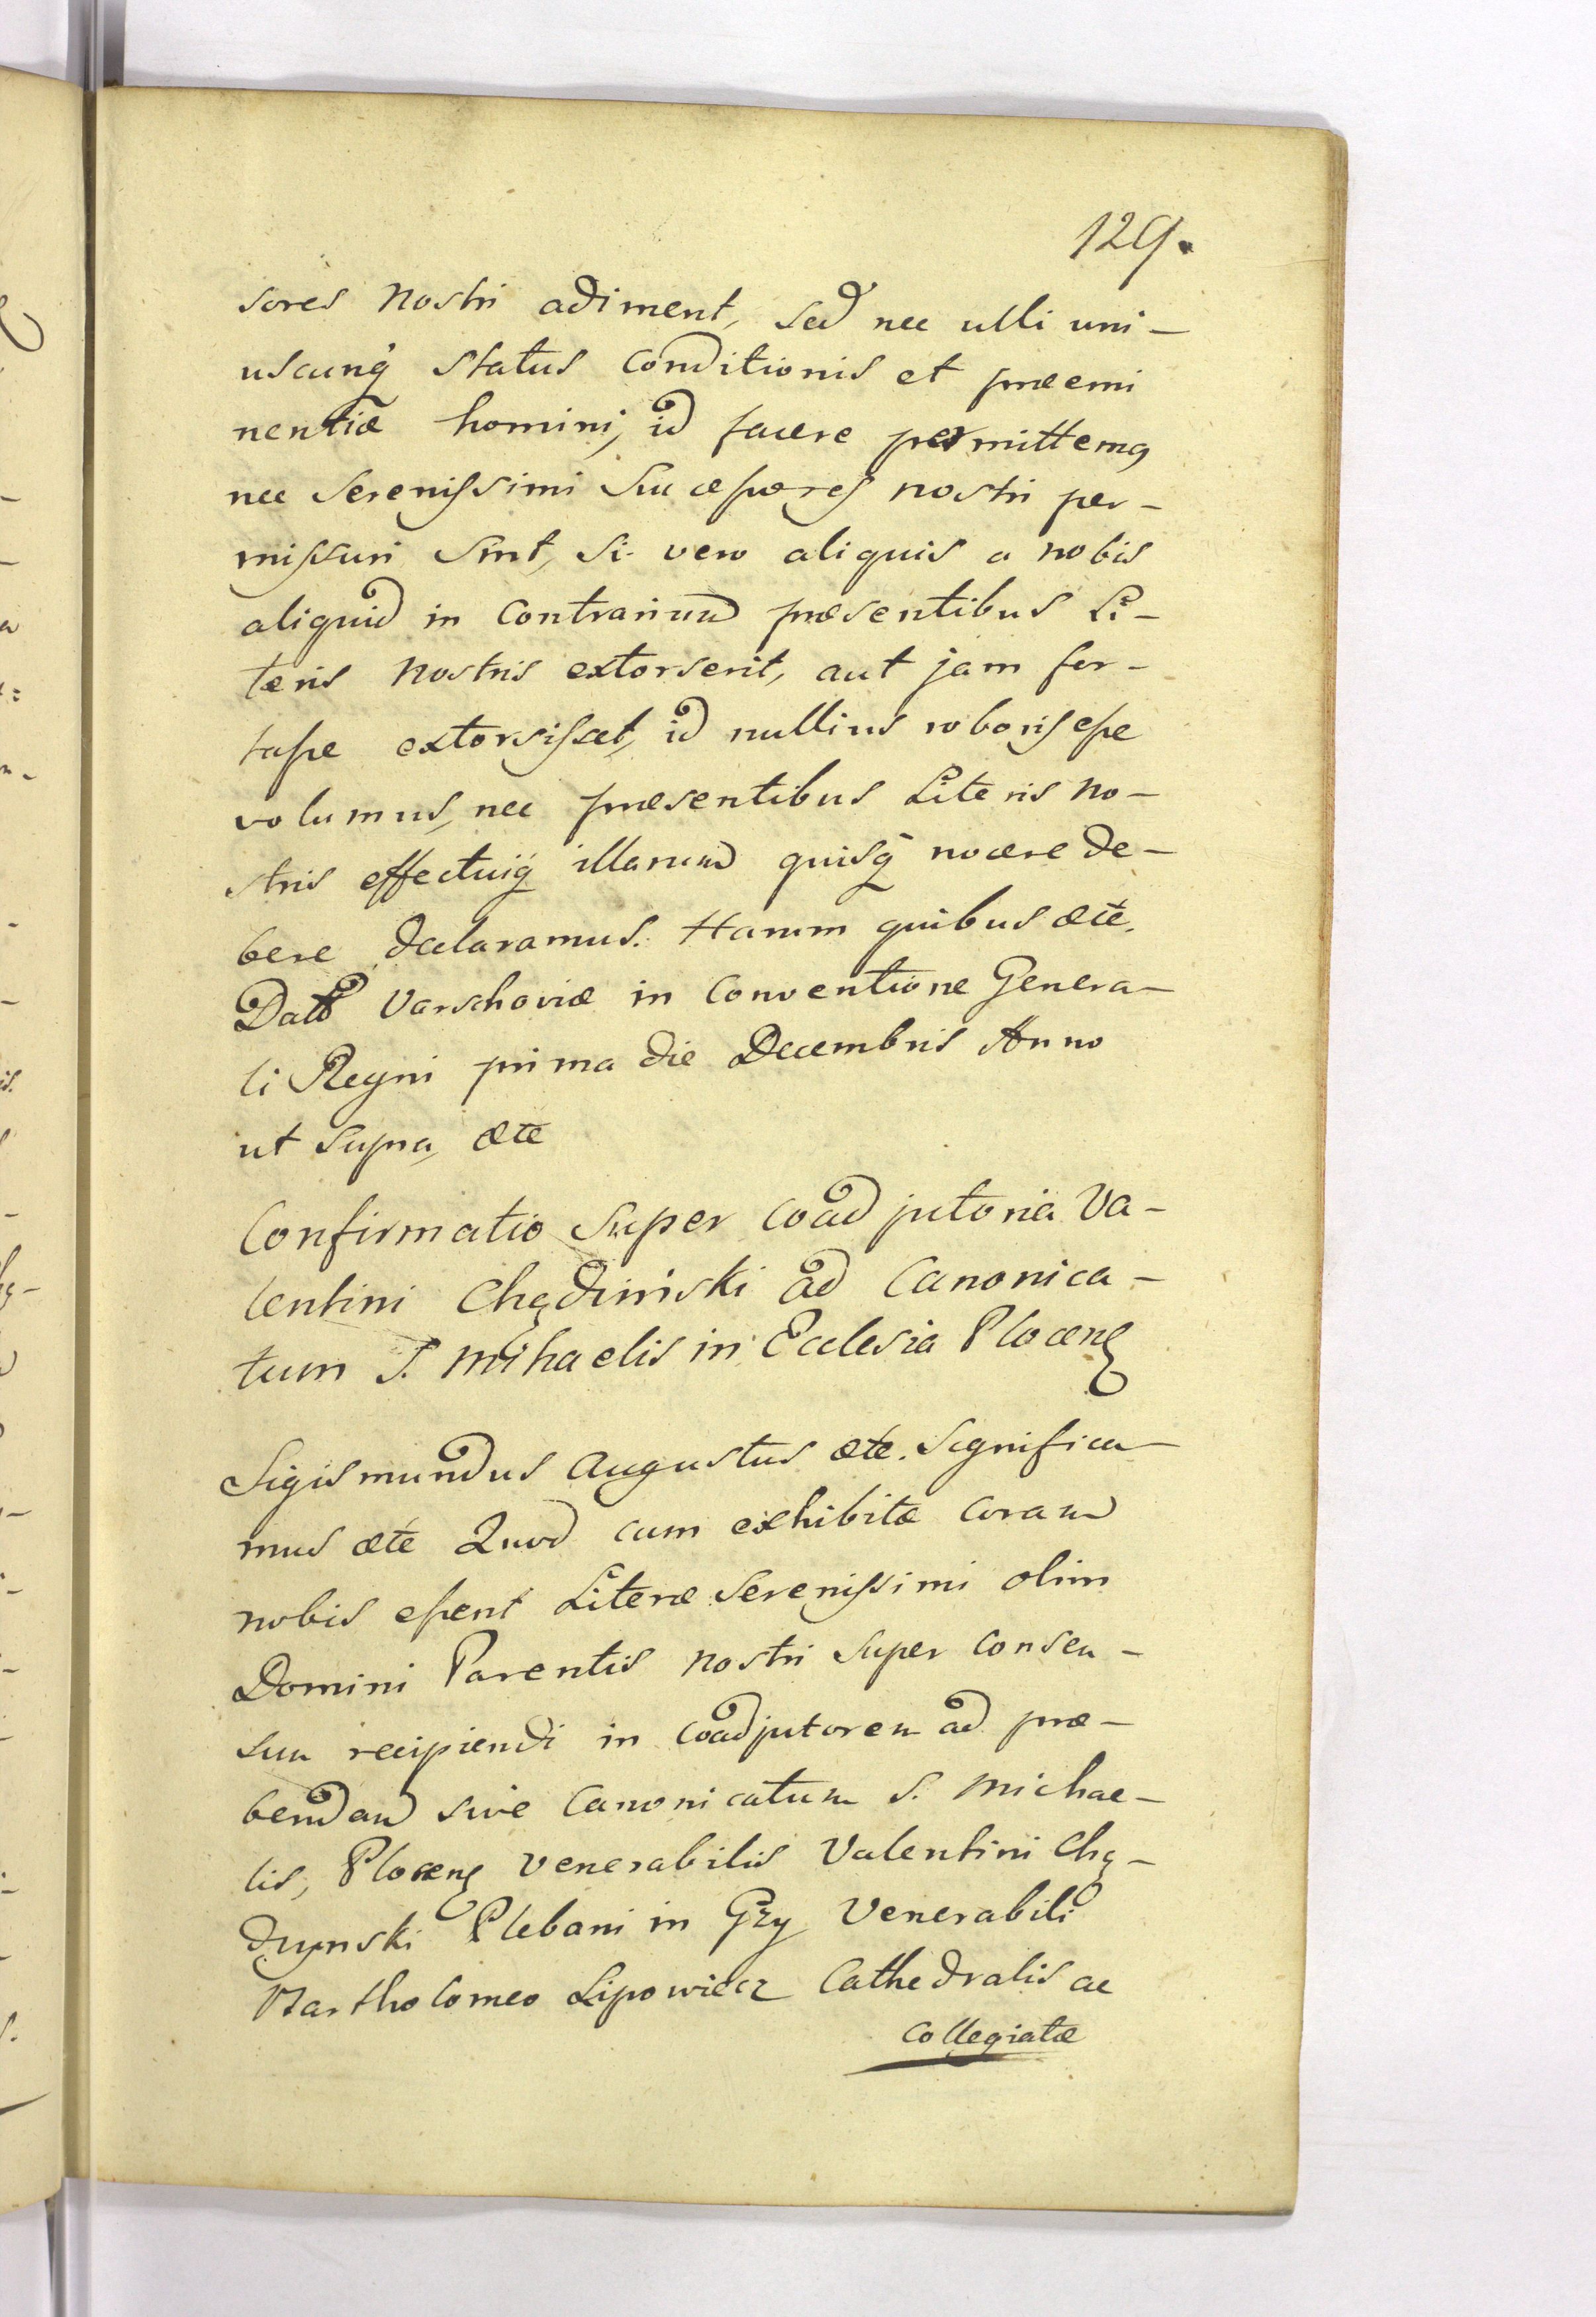 129.
sores nostri adiment, sed nec ulli uni-
uscunq̃ status conditionis et præemi
nentiæ homini, id facere permittemꝯ
nec Serenissimi Successores nostri per-
missuri sint, si vero aliquis a nobis
aliquid in contrarium præsentibus Li-
teris nostris extorserit, aut jam for-
tasse extorsisset, id nullius roboris esse
volumus, nec præsentibus Literis no-
stris effectuiq̃ illarum quisq̃ nocere de-
bere declaramus. Harum quibus ætc.
Datt Varschoviæ in Conventione Genera-
li Regni prima die Decembris Anno
ut supra, ætc
Confirmatio super coadjutoria Va-
lentini Chądiński ad Canonica-
tum S. Mihaelis in Ecclesia Plocenꝭ
Sigismundus Augustus ætc. Significa-
mus ætc Quod cum exhibitæ coram
nobis essent Literæ Serenissimi olim
Domini Parentis nostri super consen-
sum recipiendi in coadjutorem ad præ-
bendam sive Canonicatum S. Michae-
lis, Plocenꝭ Venerabilis Valentini Chą-
dzynski Plebani in Gzy Venerabili
Bartholomeo Lipowiecz Cathedralis ac
Collegiatæ